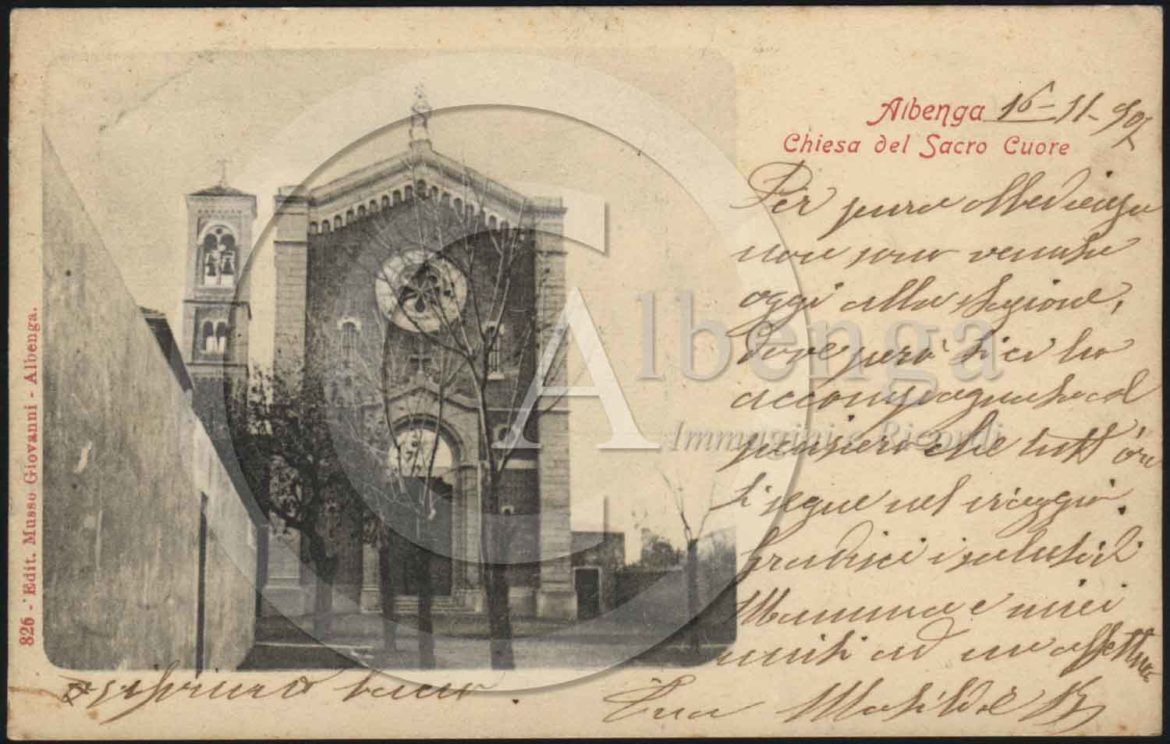 Albenga 16-11-902
Chiesa del Sacro Cuore
Per pura obbedienza
non sono venuta
oggi alla stazione,
dove però ti ci ho
accompagnata col
pensiero che tutt'ora
ti segue nel viaggio.
Gradisci i saluti di
Mamma e miei
uniti ad un affettuo
bacio
Tua Matilde B
826 - Edit. Musso Giovanni - Albenga.
CA
Albenga
Immagini e Ricordi